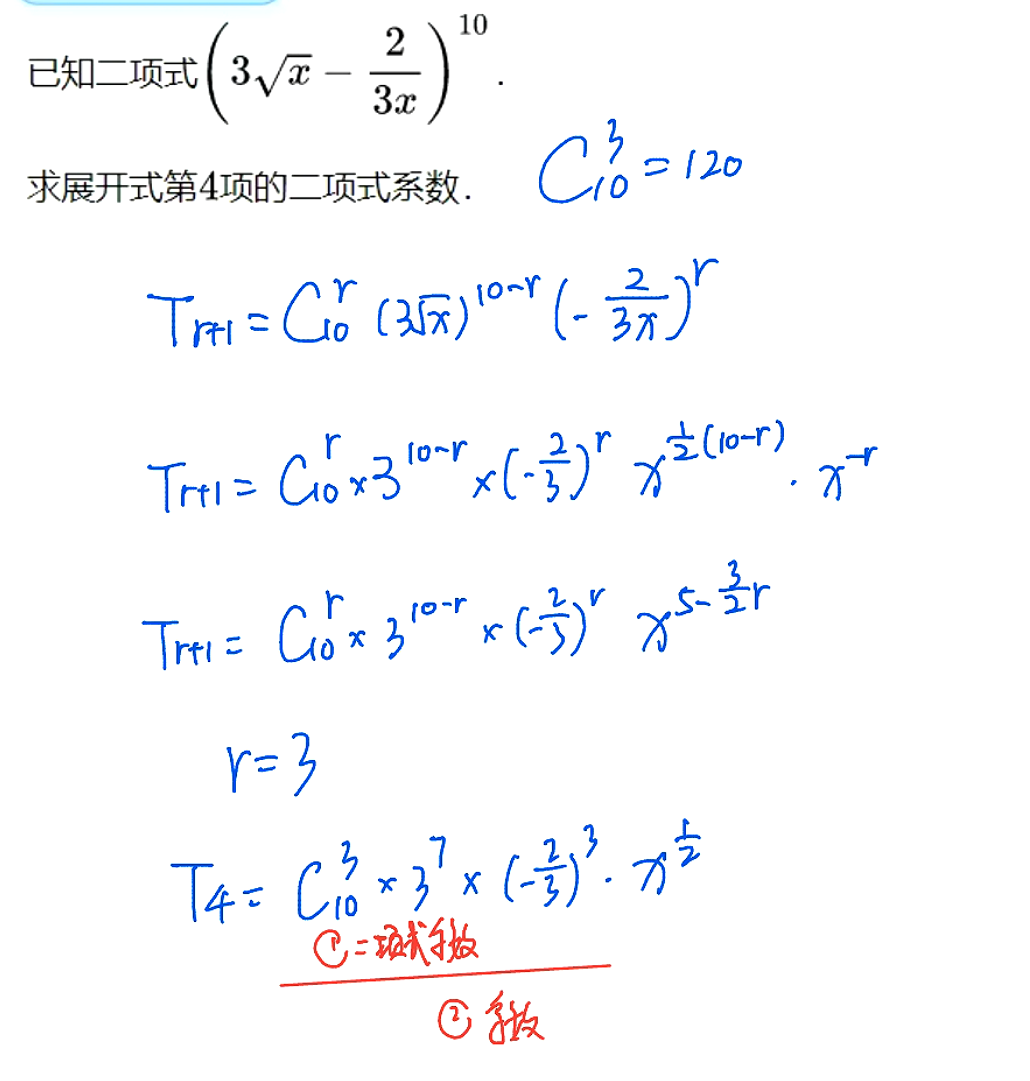 已知二项式(3√x − 2/(3x))^10 .
求展开式第4项的二项式系数. C_10^3 = 120
T_{r+1} = C_10^r (3√x)^{10-r} (-2/(3x))^r
T_{r+1} = C_10^r × 3^{10-r} × (-2/3)^r x^{1/2(10-r)} · x^{-r}
T_{r+1} = C_10^r × 3^{10-r} × (-2/3)^r x^{5-3/2r}
r = 3
T_4 = C_10^3 × 3^7 × (-2/3)^3 · x^{1/2}
① 二项式系数
② 系数